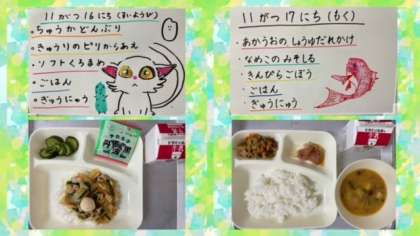 11がつ16にち(すいようび)
・ちゅうかどんぶり
・きゅうりのピリからあえ
・ソフトくろまめ
・ごはん
・ぎゅうにゅう
11がつ17にち(もく)
・あかうおのしょうゆだれかけ
・なめこのみそしる
・きんぴらごぼう
・ごはん
・ぎゅうにゅう